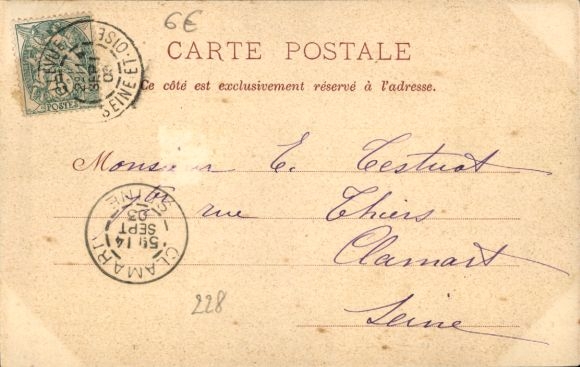 6€
CARTE POSTALE
Ce côté est exclusivement réservé à l'adresse.
POSTES
SEINE-ET-OISE
SEPT
03
Monsieur E. Testuat
rue Thiers
Clamart
Seine
CLAMART
SEINE
14
SEPT
03
228